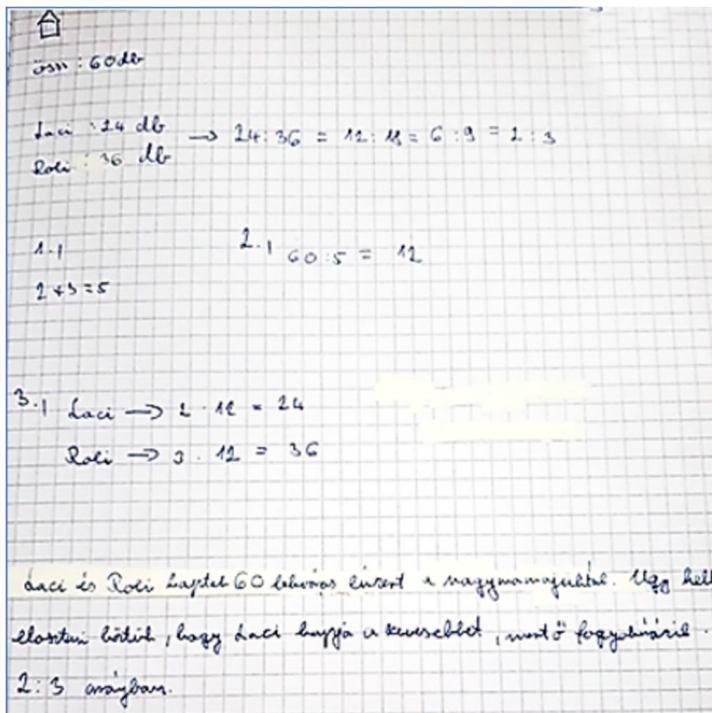 össz: 60db
Laci : 24 db → 24:36 = 12:18 = 6:9 = 2:3
Roli : 36 db
1.)
2+3=5
2.) 60:5 = 12
3.) Laci → 2 · 12 = 24
Roli → 3 · 12 = 36
Laci és Roli kaptak 60 lekváros linzert a nagymamájuktól. Úgy kell
elosztani köztük, hogy Laci kapja a kevesebbet, mert ő fogyókúrázik.
2:3 arányban.